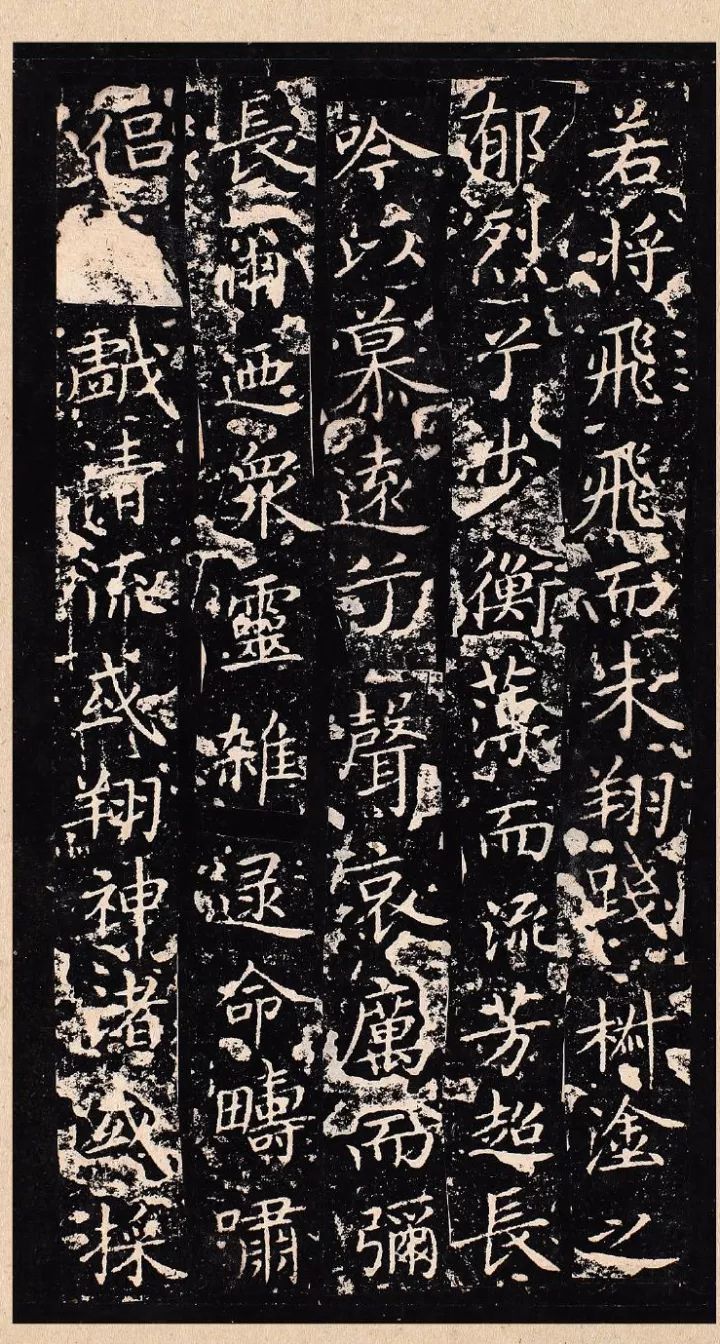 若将飛飛而未翔踐椒塗之
郁烈兮步衡薄而流芳超長
吟以慕遠兮聲哀厲而彌
長爾迺衆靈雜遝命疇嘯
侣戲清流或翔神渚或採